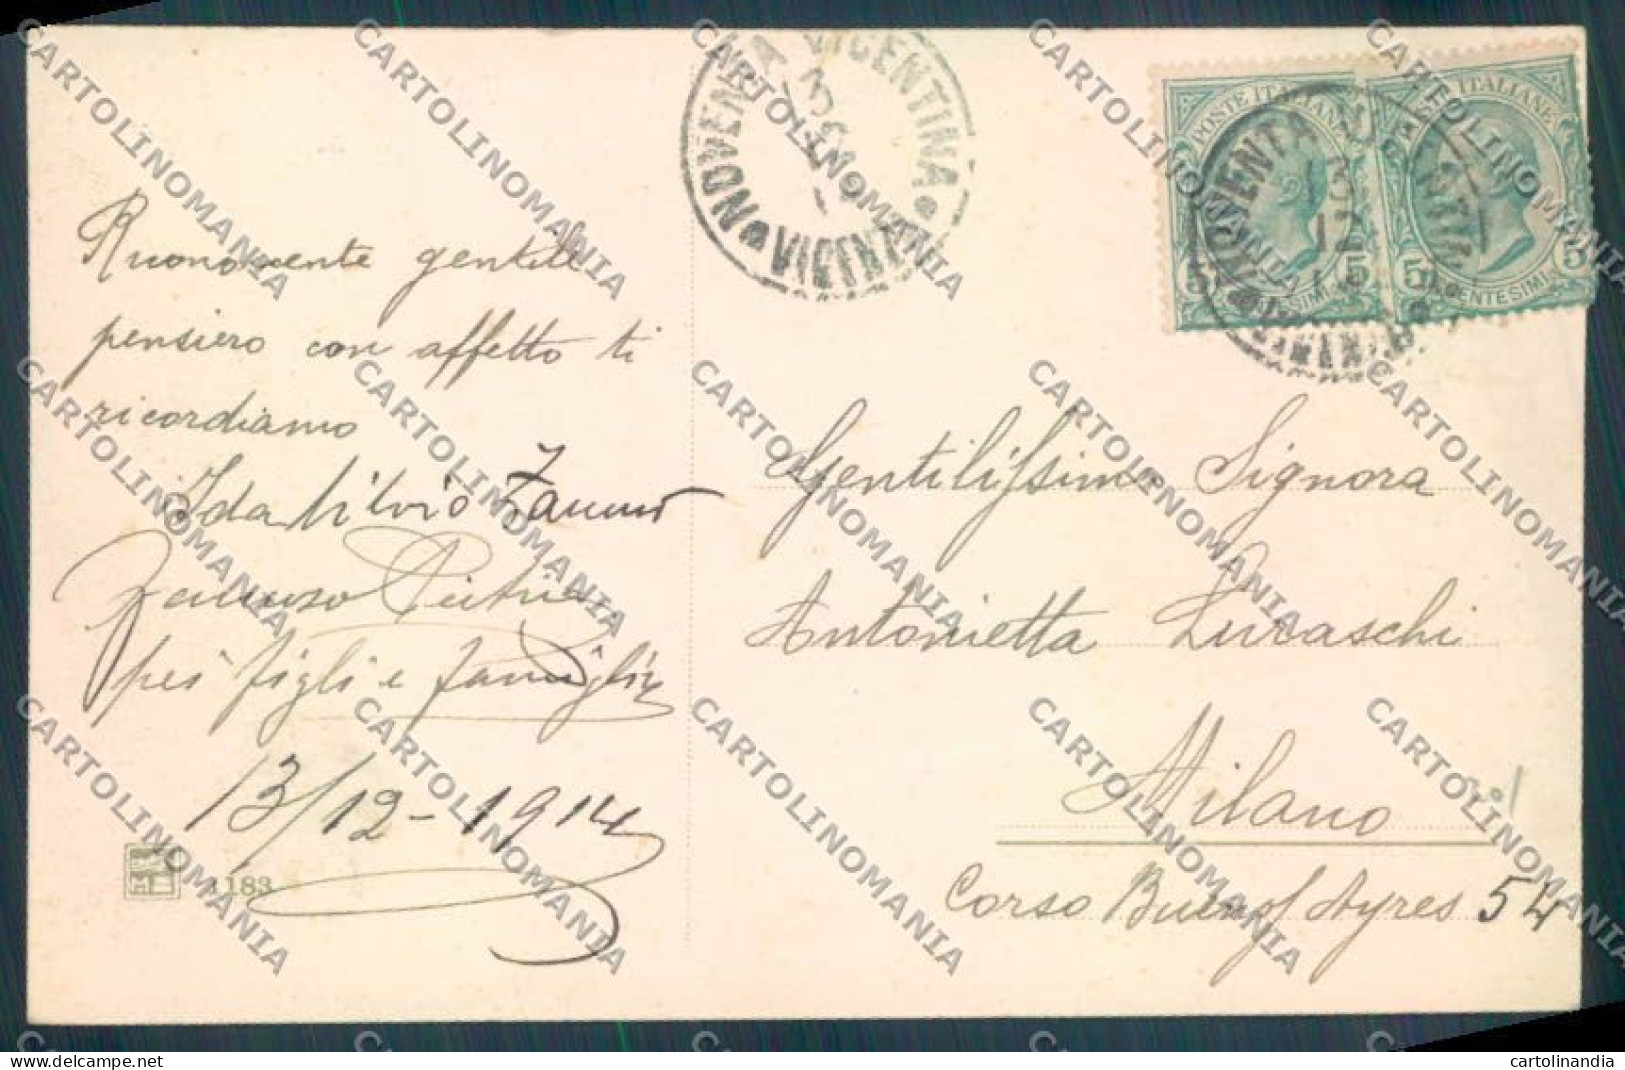 NOVENTA VICENTINA
VICENZA
POSTE ITALIANE
POSTE ITALIANE
5 CENTESIMI 5
5 CENTESIMI 5
Riconoscente gentile
pensiero con affetto ti
ricordiamo
Ida Silvio
per figli e famiglia
13/12-1914
1183
Gentilissima Signora
Antonietta Luraschi
Milano
Corso Buenos Ayres 54
CARTOLINOMANIA
cartolinandia